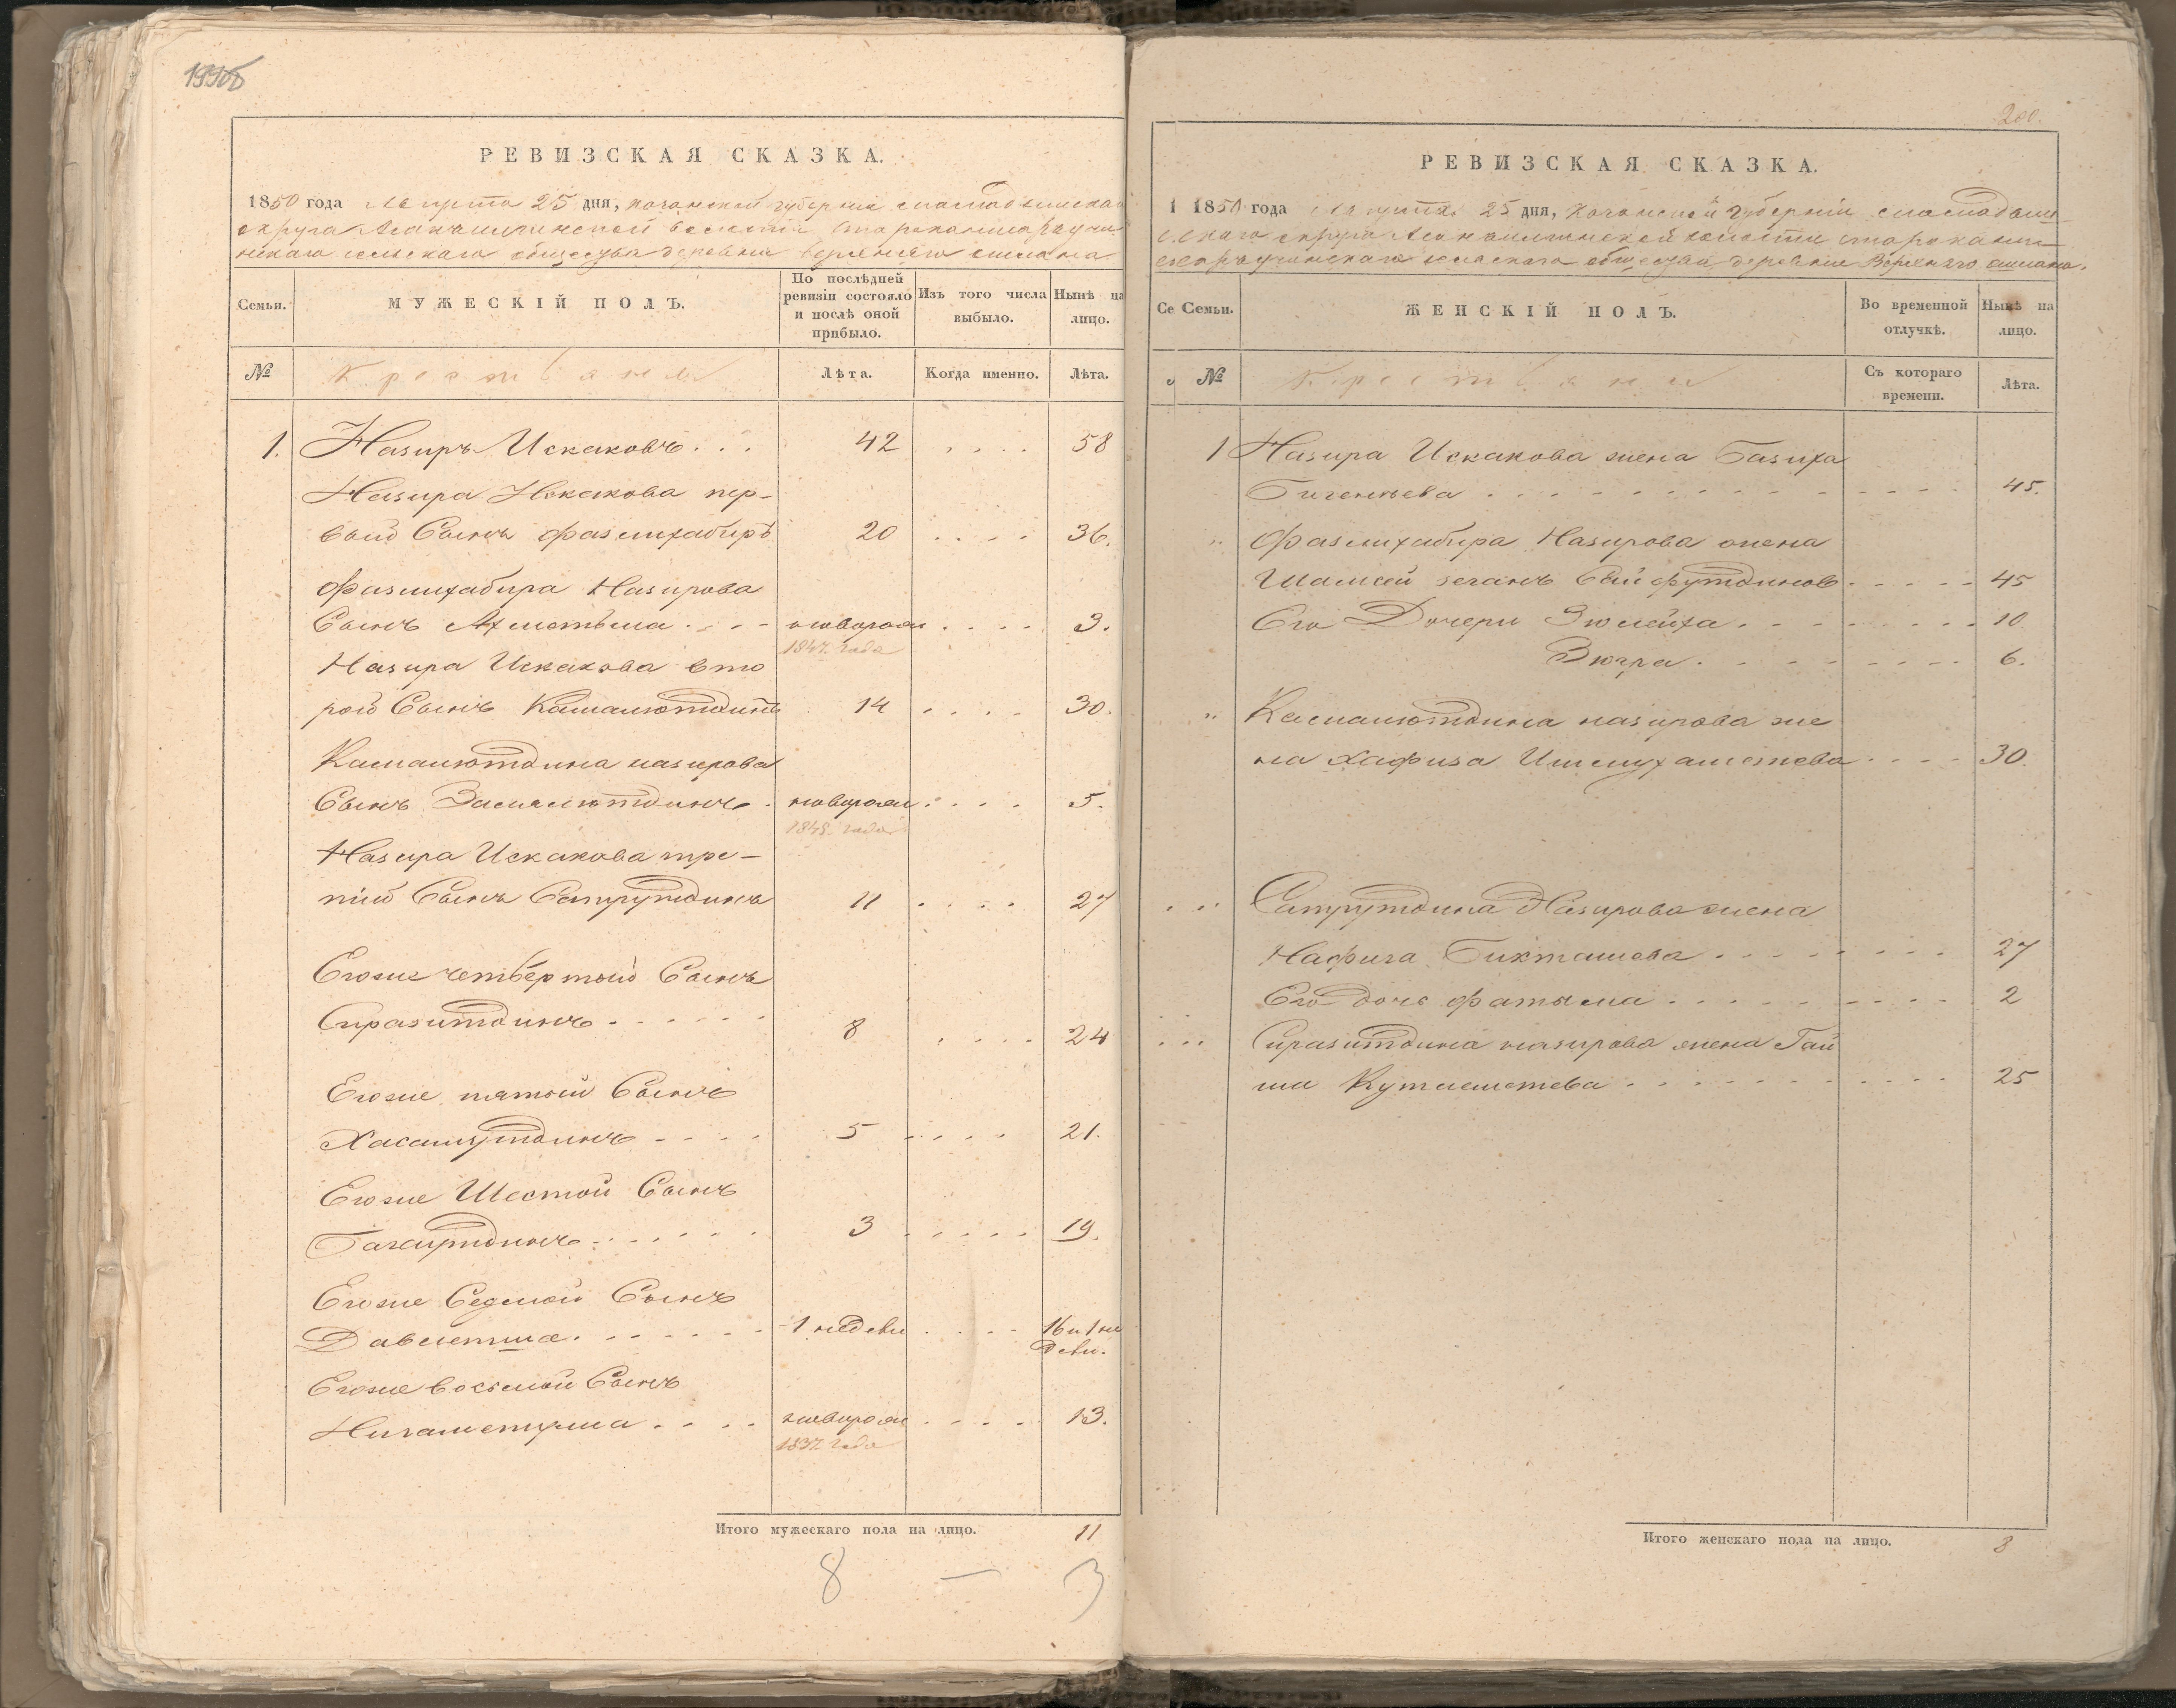 199об
РЕВИЗСКАЯ СКАЗКА.
1850 года Августа 25 дня, Казанской губернии
округа волости
сельскаго общества деревни Верхняго
Семьи.
МУЖЕСКІЙ ПОЛЪ.
По послѣдней ревизіи состояло и послѣ оной прибыло.
Изъ того числа выбыло.
Нынѣ на лицо.
№
Крестьяне
Лѣта.
Когда именно.
Лѣта.
1. Назиръ Искаковъ . . . 42 . . . . 58
Назира Искакова пер-
вый Сынъ Фазлихабиръ 20 . . . . 36.
Фазлихабира Назирова
Сынъ . . . новорож . . . . 3.
1847 года
Назира Искакова вто
рой Сынъ Камалютдинъ 14 . . . . 30.
Камалютдина назирова
Сынъ Замалютдинъ . новорож . . . . 5.
1845 года
Назира Искакова тре-
тій Сынъ 11 . . . . 27
Егоже четвертый Сынъ
Сиразитдинъ . . . . . . 8 . . . . 24
Егоже пятый Сынъ
Хасамутдинъ - - - - 5 . . . . 21.
Егоже Шестой Сынъ
. . . . . . 3 . . . . 19.
Егоже Седмой Сынъ
Давлетша . . . . . . 1 недели . . . . 16 и 1 не
дели.
Егоже восьмой Сынъ
Нигаметулла . . . . новорож . . . . 13.
1837 года
Итого мужескаго пола на лицо. 11
8 — 3
200.
РЕВИЗСКАЯ СКАЗКА.
1 1850 года Августа 25 дня, Казанской Губерніи
округа волости
сельскаго общества деревни Верхняго
Се Семьи.
ЖЕНСКІЙ ПОЛЪ.
Во временной отлучкѣ.
Нынѣ на лицо.
№
Крестьяне
Съ котораго времени.
Лѣта.
1 Назира Искакова жена Базиха
. . . . . . . . . . 45.
" Фазлихабира Назирова жена
Сайфутдинов . . . . . 45
Его Дочери Зюлейха . . . . . . . . 10
Зюгра . . . . . . . . 6.
" Камалютдина назирова же
на Хафиза Ишмухаметева . . . . 30.
" Назирова жена
Нафига Бикташева . . . . . . . 27
Его дочь Фатыма . . . . . . . . 2
" Сиразитдина назирова жена Гай
ша Кутлеметева . . . . . . . . 25
Итого женскаго пола на лицо. 8